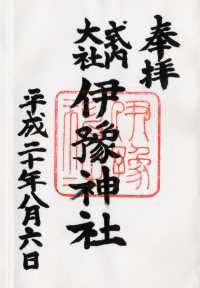 奉拝
式内
大社
伊豫神社
平成二十年八月六日